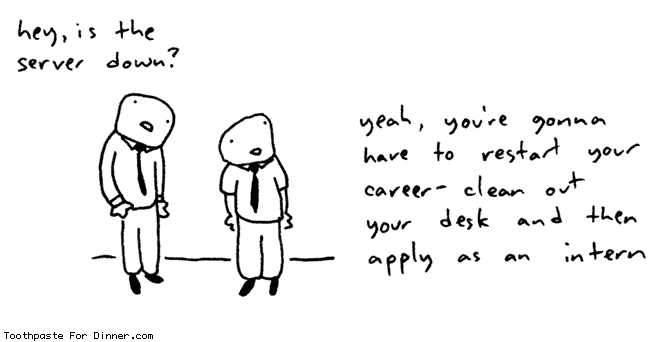 hey, is the
server down?
yeah, you're gonna
have to restart your
career- clean out
your desk and then
apply as an intern
Toothpaste For Dinner.com